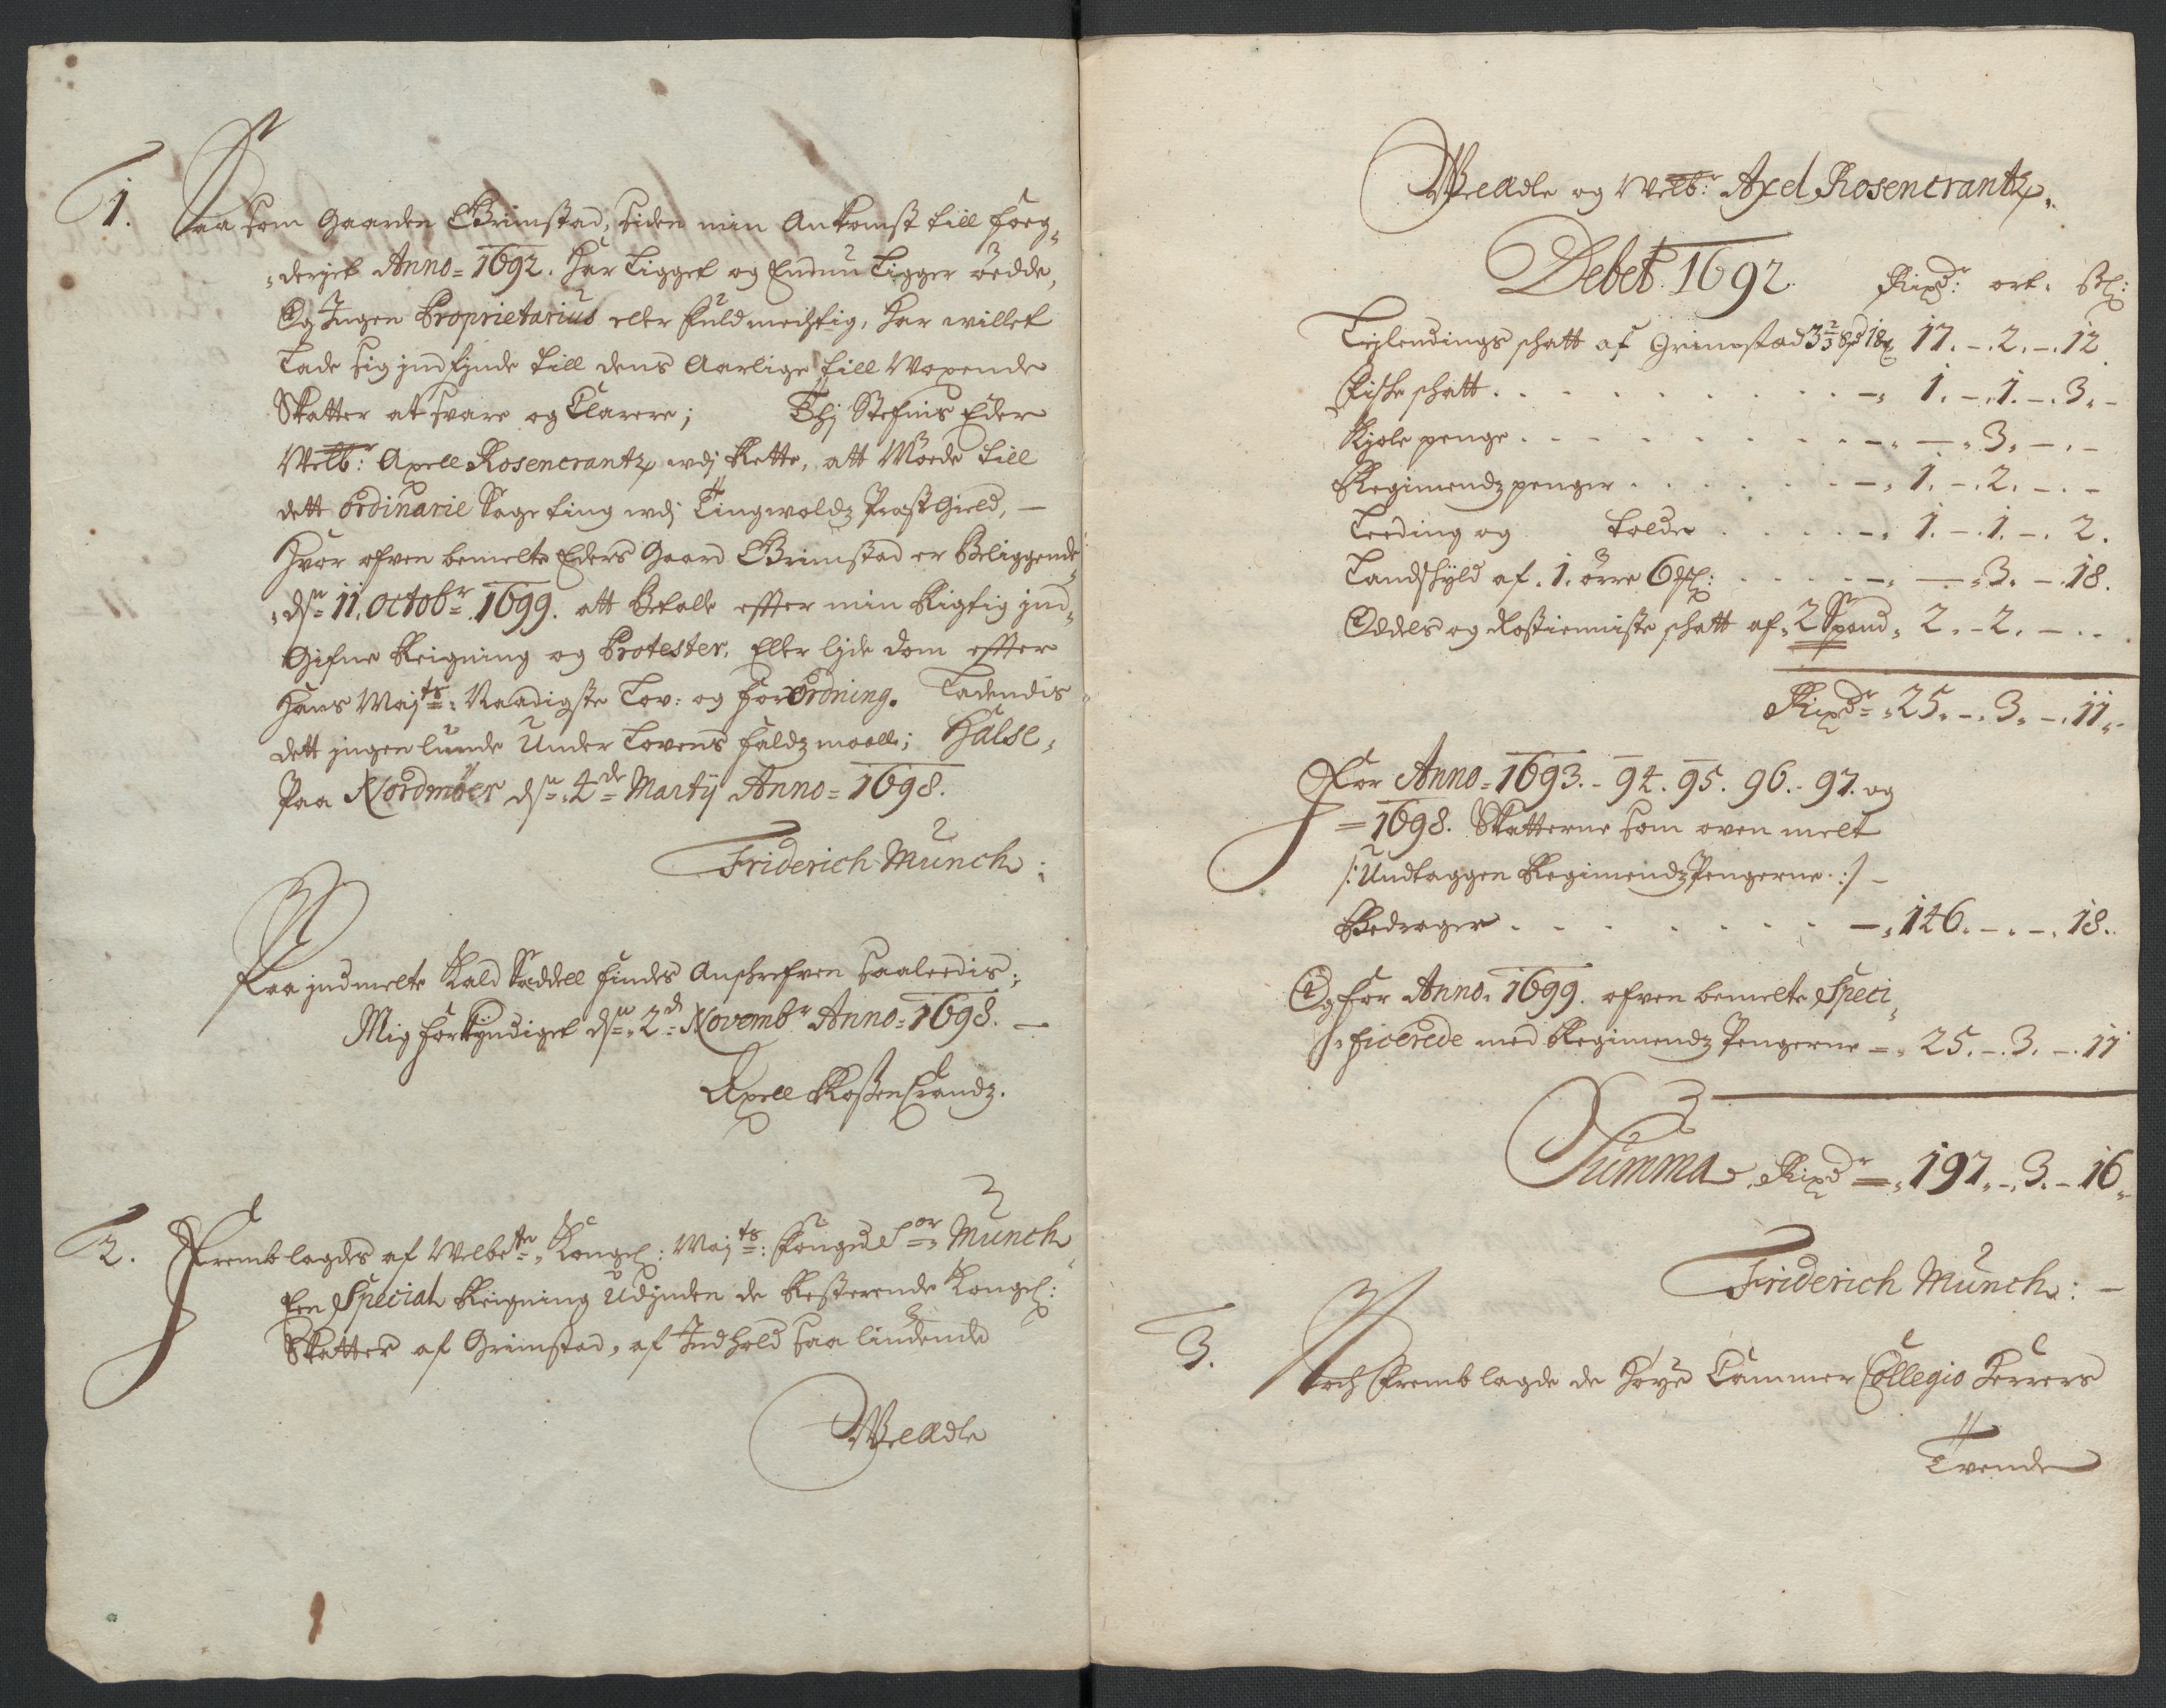 1. Saa som Gaarden Grimstad, siden min Ankomst till foeg„
„deriet Anno= 1692. har Ligget og Endnu Ligger øedde,
Og Ingen Proprietarius eller fuldmechtig, har willet
Lade sig jndfinde till dens Aarlige till Woxende
Skatter at svare og Clarere; Thj Stefnis Eder
Welb:r Axell Rosencrantz wdj Rette, att Møede till
dett Ordinarie Sageting wdj Tingwolds Præstgield, —
Hvor ofven bemelte Eders Gaard Grimstad er Beliggende
„dn 11. octobr. 1699. att Betalle effter min Rigtig jnd„
Gifne Reigning og Protester, Eller ljde dom effter
Hans Majts: Naadigste Lov: og forordning. Ladendis
dett jngenlunde Under Lovens faldsmaall; Halse,
Paa Nordmøer dn: 4de Martij Anno= 1698.
Friderich Münch:
Paa jndmelte Kald Seddell findes Anschrefven saaleedis;
Mig forkyndiget dn: 2d Novembr Anno= 1698. —
Axell Roßen Crandz.
2. Fremblagdes af Welbete Kongl: Majts: Fougd Sor Münch
Een Special Reigning Udjnden de Resterende Kongl:
Skatter af Grimstad, af Indhold saa liudende
WelEdle
WelEdle og Welb:r Axel Rosencrantz,
Debet 1692. Rixdr: ort. ßl:
Lejlendings schatt af Grimstad 3 2/3 Spd 18 17. –. 2. –. 12
Fiske schatt . . . . . –. 1. –. 1. –. 3. –
Kjøle penge . . . . . –. –. 3. –. –
Regimendz penger . . . . –. 1. –. 2. –. –
Leeding og tolder . . . . –. 1. –. 1. –. 2.
Landskyld af. 1. ørre 6 : . . . –. –. 3. –. 18.
Oddels og Rostienniste schatt af 2 Spand 2. – 2. – . .
Rixdr= 25. –. 3. –. 11.
For Anno= 1693. – 94. 95. 96. – 97. og
= 1698. Skatterne som oven melt
/: Undtaggen Regimendz Pengerne :/ –
Bedrager . . . . . –. 146. –. –. 18.
Og for Anno. 1699. ofven bemelte Speci„
„ficerede med Regimendz Pengerne –. 25. –. 3. –. 11
Summa Rixdr =. 197. –. 3. – 16.
Friderich Münch: –
3. Noch Fremblagde de høye Cammer Collegio Herrers
Tvende